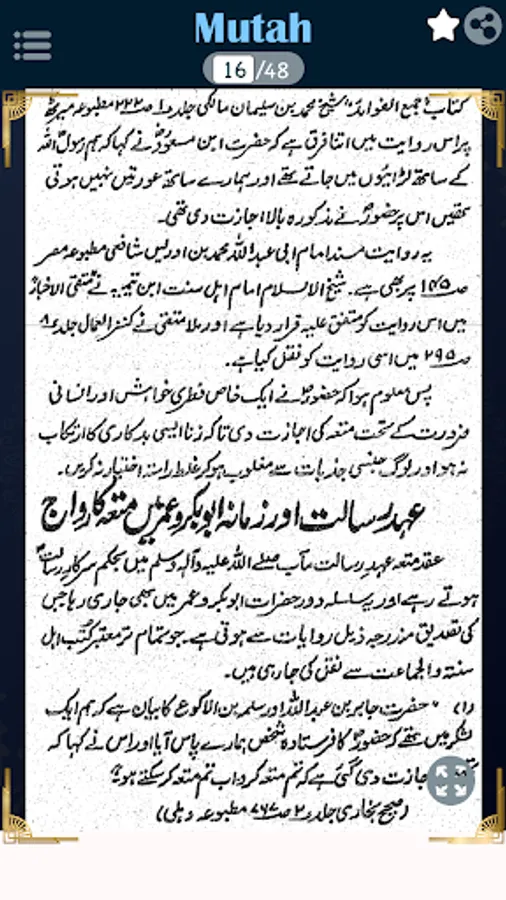 Mutah
16/48
کتاب "جمع الفوائد" شیخ محمد بن سلیمان مالکی جلد ۱ ص ۲۲۲ مطبوعہ میرٹھ
پر اس روایت میں اتنا فرق ہے کہ حضرت ابن مسعودؓ نے کہا کہ ہم رسول اللہ
کے ساتھ لڑائیوں میں جاتے تھے اور ہمارے ساتھ عورتیں نہیں ہوتی
تھیں اس پر حضورؐ نے مذکورہ بالا اجازت دی تھی۔
یہ روایت مسند امام ابی عبد اللہ محمد بن ادریس شافعی مطبوعہ مصر
ص ۱۶۵ پر بھی ہے۔ شیخ الاسلام امام اہل سنت ابن تیمیہ نے منتقی الاخبار
میں اس روایت کو متفق علیہ قرار دیا ہے اور ملا متقی نے کنز العمال جلد ۸
ص ۲۹۵ میں اسی روایت کو نقل کیا ہے۔
پس معلوم ہوا کہ حضورؐ نے ایک خاص فطری خواہش اور انسانی
ضرورت کے تحت متعہ کی اجازت دی تاکہ زنا ایسی بدکاری کا ارتکاب
نہ ہو اور لوگ جنسی جذبات سے مغلوب ہو کر غلط راستہ اختیار نہ کریں۔
عہد رسالت اور زمانہ ابوبکر و عمر میں متعہ کا رواج
عقد متعہ عہد رسالت مآب صلے اللہ علیہ وآلہ وسلم میں بحکم سرکار رسالتؐ
ہوتے رہے اور یہ سلسلہ دور حضرات ابوبکر و عمر میں بھی جاری رہا جس
کی تصدیق مندرجہ ذیل روایات سے ہوتی ہے۔ جو تمام تر معتبر کتب اہل
سنتہ والجماعت سے نقل کی جا رہی ہیں۔
(۱) "حضرت جابر بن عبد اللہ اور سلمہ بن الاکوع کا بیان ہے کہ ہم ایک
لشکر میں تھے کہ حضورؐ کا فرستادہ شخص ہمارے پاس آیا اور اس نے کہا کہ
اجازت دی گئی ہے کہ تم متعہ کرو اب تم متعہ کر سکتے ہو۔"
(صحیح بخاری جلد ۲ ص ۷۶۷ مطبوعہ دہلی)